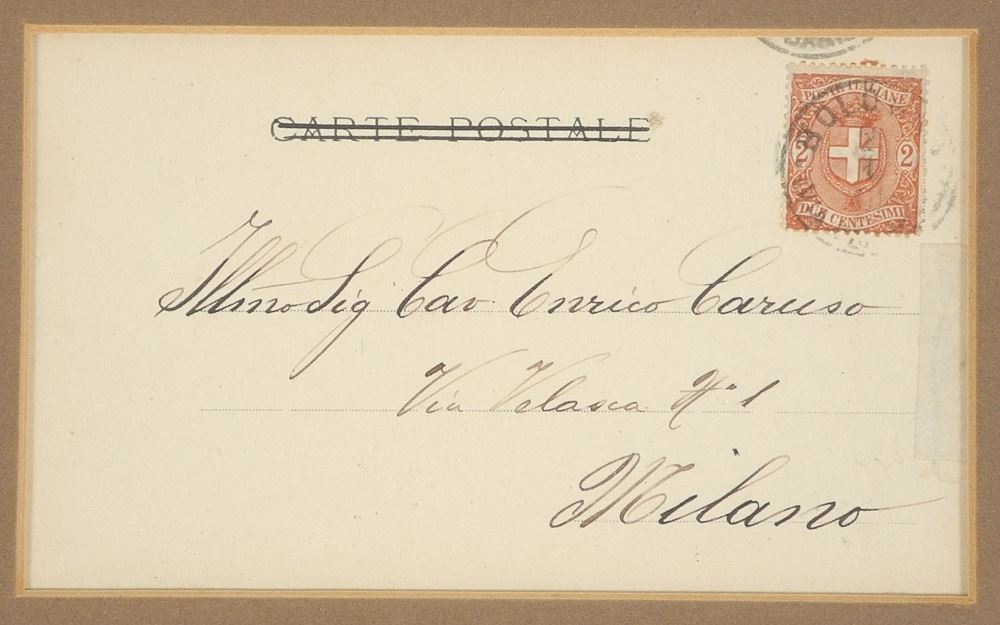 CARTE POSTALE
POSTE ITALIANE
2 2
DUE CENTESIMI
Illmo Sig Cav Enrico Caruso
Via Velasca No 1
Milano